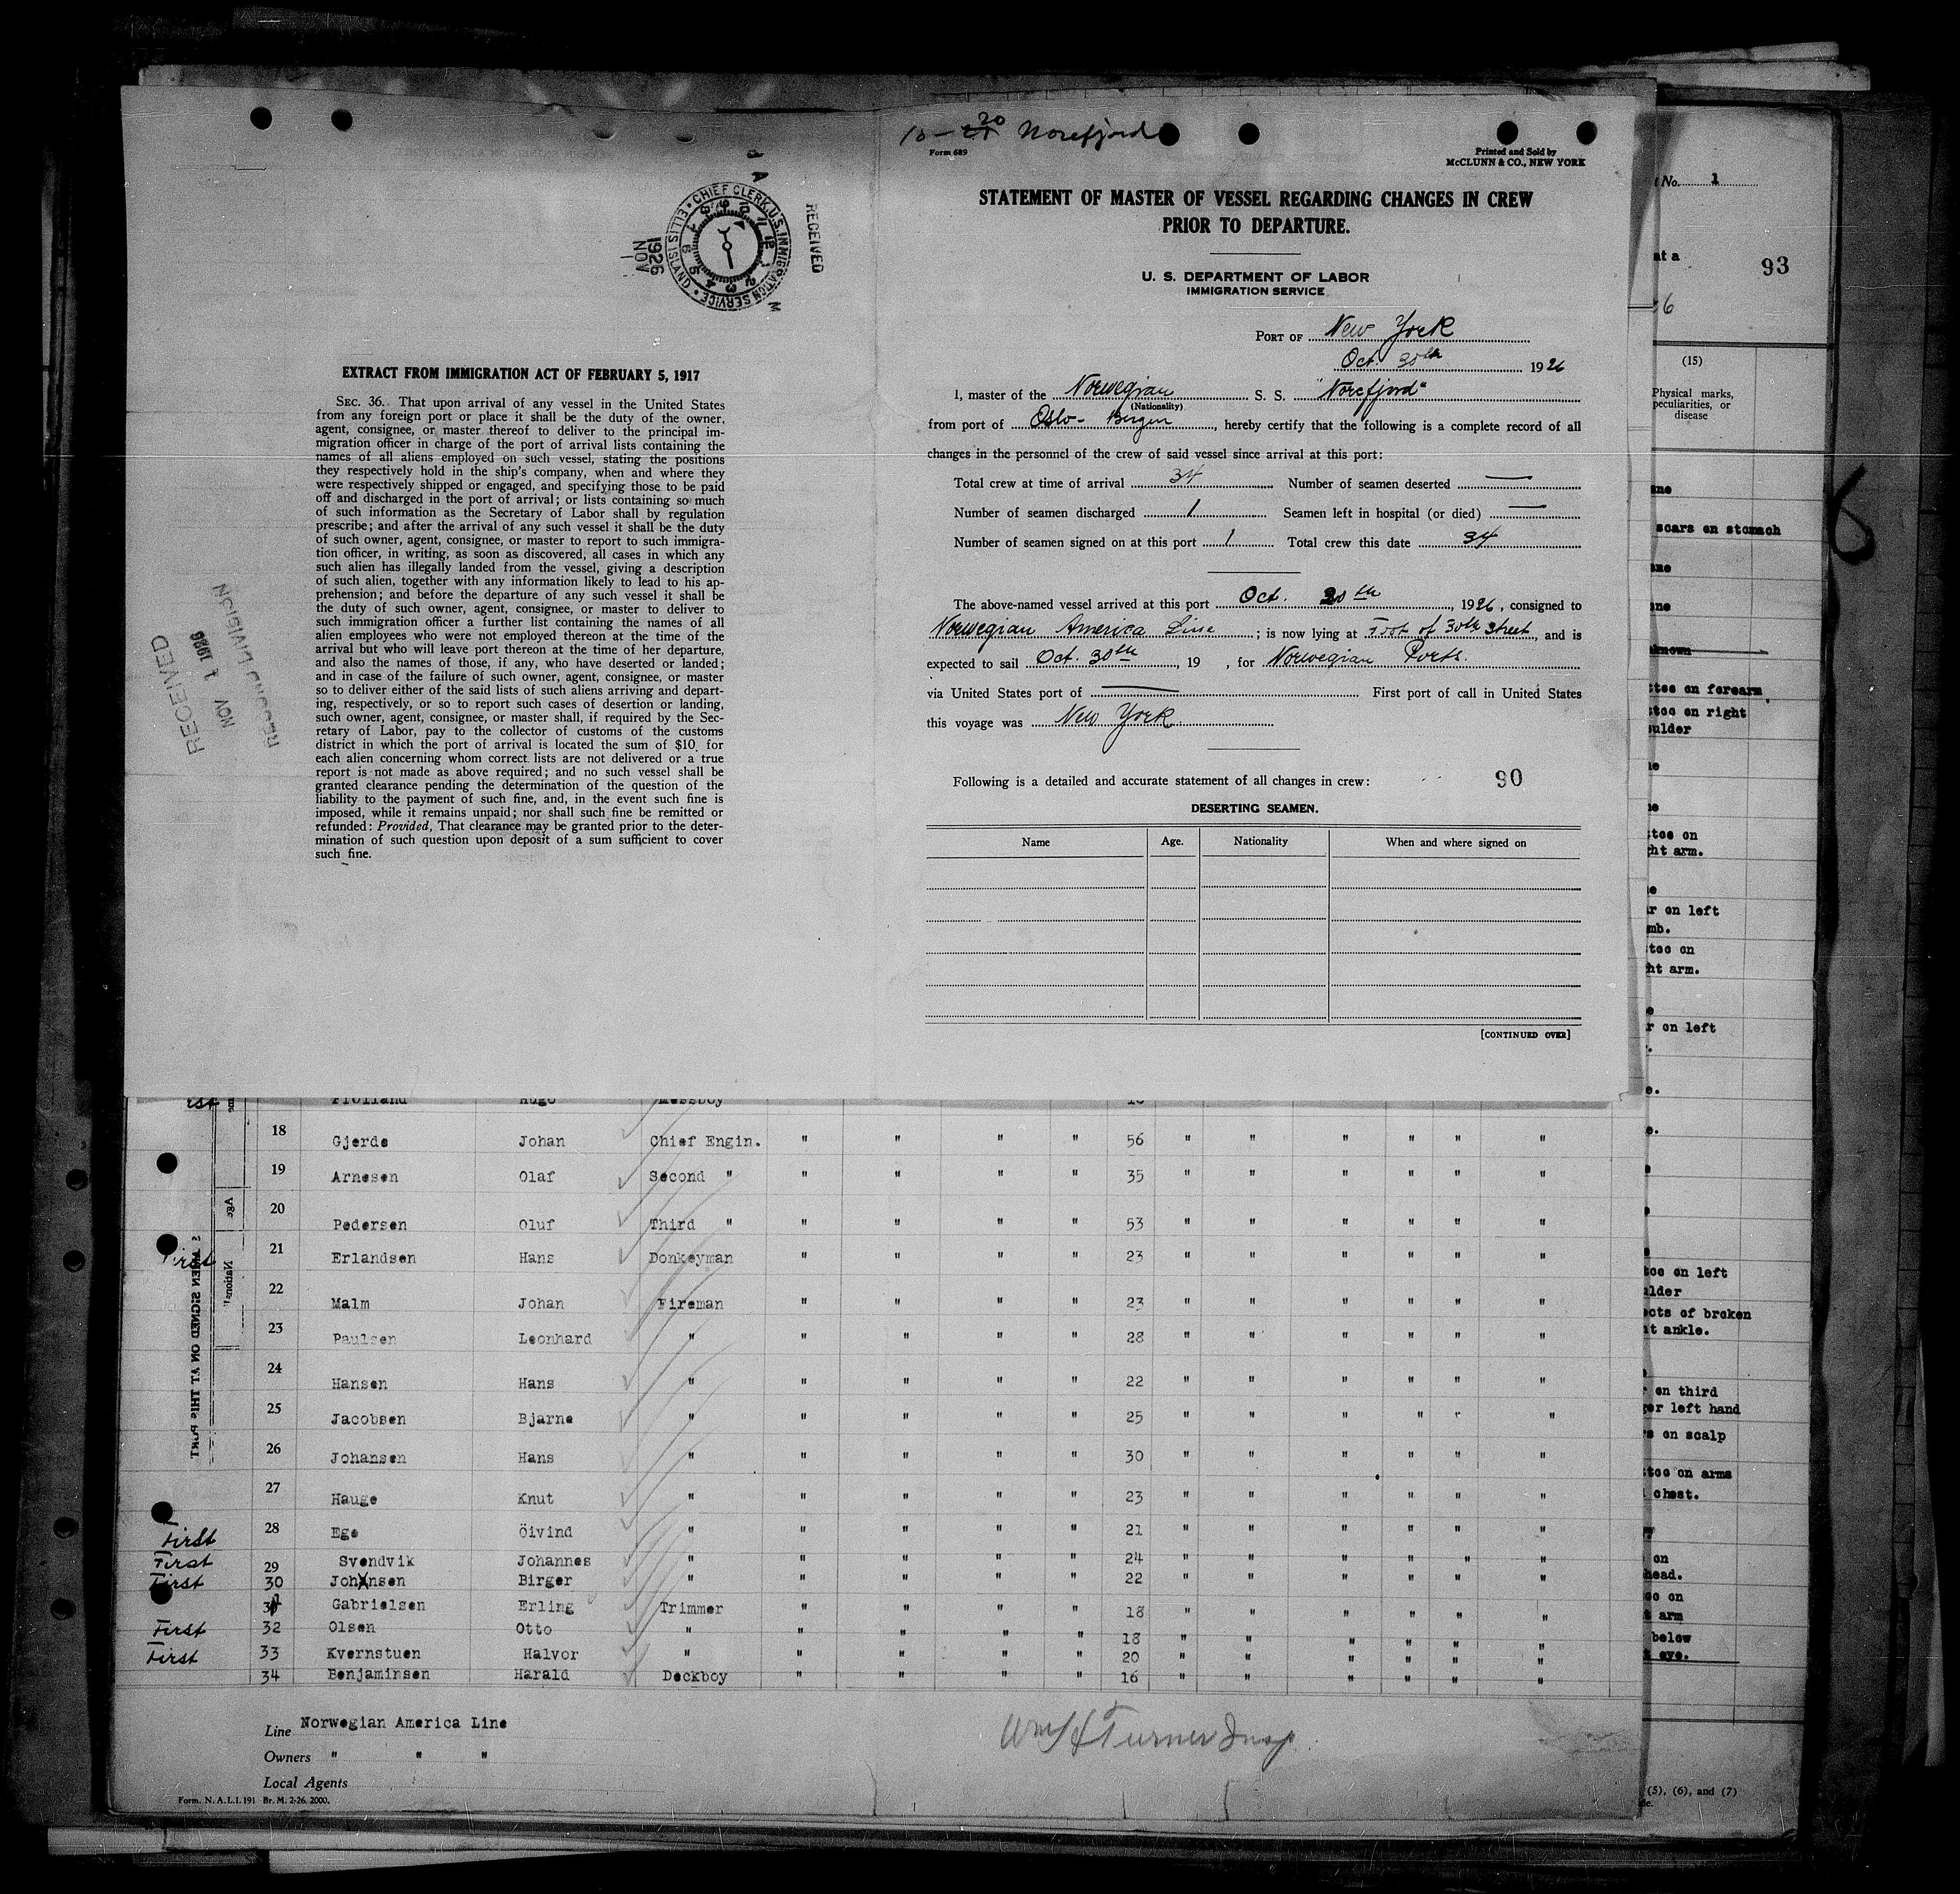 10-20 Norefjord
Form 689
Printed and Sold by
McCLUNN & CO., NEW YORK
STATEMENT OF MASTER OF VESSEL REGARDING CHANGES IN CREW
PRIOR TO DEPARTURE.
U. S. DEPARTMENT OF LABOR
IMMIGRATION SERVICE
PORT OF New York
Oct. 30th 1926
I, master of the Norwegian S. S. "Norefjord"
(Nationality)
from port of Oslo - Bergen, hereby certify that the following is a complete record of all
changes in the personnel of the crew of said vessel since arrival at this port:
Total crew at time of arrival 34 Number of seamen deserted —
Number of seamen discharged 1 Seamen left in hospital (or died) —
Number of seamen signed on at this port 1 Total crew this date 34
The above-named vessel arrived at this port Oct. 20th, 1926, consigned to
Norwegian America Line; is now lying at Foot of 30th Street, and is
expected to sail Oct. 30th, 19 , for Norwegian Ports.
via United States port of — First port of call in United States
this voyage was New York
Following is a detailed and accurate statement of all changes in crew: 90
DESERTING SEAMEN.
Name Age. Nationality When and where signed on
[CONTINUED OVER]
RECEIVED
CHIEF CLERK, U.S. IMMIGRATION SERVICE • ELLIS ISLAND •
1926 NOV 1
A M
EXTRACT FROM IMMIGRATION ACT OF FEBRUARY 5, 1917
SEC. 36. That upon arrival of any vessel in the United States
from any foreign port or place it shall be the duty of the owner,
agent, consignee, or master thereof to deliver to the principal im-
migration officer in charge of the port of arrival lists containing the
names of all aliens employed on such vessel, stating the positions
they respectively hold in the ship's company, when and where they
were respectively shipped or engaged, and specifying those to be paid
off and discharged in the port of arrival; or lists containing so much
of such information as the Secretary of Labor shall by regulation
prescribe; and after the arrival of any such vessel it shall be the duty
of such owner, agent, consignee, or master to report to such immigra-
tion officer, in writing, as soon as discovered, all cases in which any
such alien has illegally landed from the vessel, giving a description
of such alien, together with any information likely to lead to his ap-
prehension; and before the departure of any such vessel it shall be
the duty of such owner, agent, consignee, or master to deliver to
such immigration officer a further list containing the names of all
alien employees who were not employed thereon at the time of the
arrival but who will leave port thereon at the time of her departure,
and also the names of those, if any, who have deserted or landed;
and in case of the failure of such owner, agent, consignee, or master
so to deliver either of the said lists of such aliens arriving and depart-
ing, respectively, or so to report such cases of desertion or landing,
such owner, agent, consignee, or master shall, if required by the Sec-
retary of Labor, pay to the collector of customs of the customs
district in which the port of arrival is located the sum of $10 for
each alien concerning whom correct lists are not delivered or a true
report is not made as above required; and no such vessel shall be
granted clearance pending the determination of the question of the
liability to the payment of such fine, and, in the event such fine is
imposed, while it remains unpaid; nor shall such fine be remitted or
refunded: Provided, That clearance may be granted prior to the deter-
mination of such question upon deposit of a sum sufficient to cover
such fine.
RECEIVED
NOV 1 1926
RECORD DIVISION
Hugo Messboy
18 Gjerde Johan Chief Engin. " " " " 56 " " " " " "
19 Arnesen Olaf Second " " " " " 35 " " " " " "
20 Pedersen Oluf Third " " " " " 53 " " " " " "
First 21 Erlandsen Hans Donkeyman " " " " 23 " " " " " "
22 Malm Johan Fireman " " " " 23 " " " " " "
23 Paulsen Leonhard " " " " " 28 " " " " " "
24 Hansen Hans " " " " " 22 " " " " " "
25 Jacobsen Bjarne " " " " " 25 " " " " " "
26 Johansen Hans " " " " " 30 " " " " " "
27 Hauge Knut " " " " " 23 " " " " " "
First 28 Ege Öivind " " " " " 21 " " " " " "
First 29 Svendvik Johannes " " " " " 24 " " " " " "
First 30 Johansen Birger " " " " " 22 " " " " " "
31 Gabrielsen Erling Trimmer " " " " 18 " " " " " "
First 32 Olsen Otto " " " " " 18 " " " " " "
First 33 Kvernstuen Halvor " " " " " 20 " " " " " "
34 Benjaminsen Harald Deckboy " " " " 16 " " " " " "
Age
MEN SIGNED ON AT THIS PORT
Line Norwegian America Line
Owners " " "
Local Agents
Form. N. A. L. I. 191 Br. M. 2-26. 2000.
Wm H Turner Insp.
No. 1
at a
93
6
(15)
Physical marks,
peculiarities, or
disease
6
scars on stomach
on forearm
on right
on
arm.
on left
on
arm.
on left
on left
of broken
ankle.
on third
left hand
on scalp
on arms
chest.
on
on
arm
below
eye.
(5), (6), and (7)